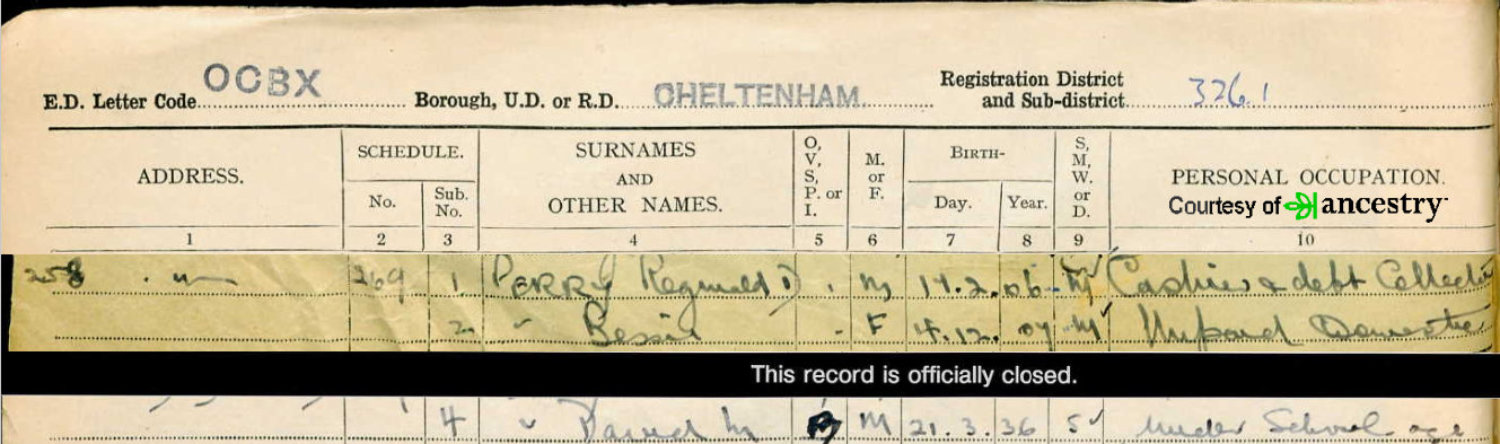 E.D. Letter Code OCBX Borough, U.D. or R.D. CHELTENHAM Registration District and Sub-district 326.1
ADDRESS.
SCHEDULE.
No.
Sub. No.
SURNAMES
AND
OTHER NAMES.
O, V, S, P. or I.
M. or F.
BIRTH-
Day.
Year.
S, M, W. or D.
PERSONAL OCCUPATION.
Courtesy of ancestry
1 2 3 4 5 6 7 8 9 10
258 269 1 PERRY Reginald D . M 14.2.06 M Cashier & debt Collector
2 " Bessie - F 4.12.07 M Unpaid Domestic
This record is officially closed.
4 " David M M 21.3.36 S Under School age